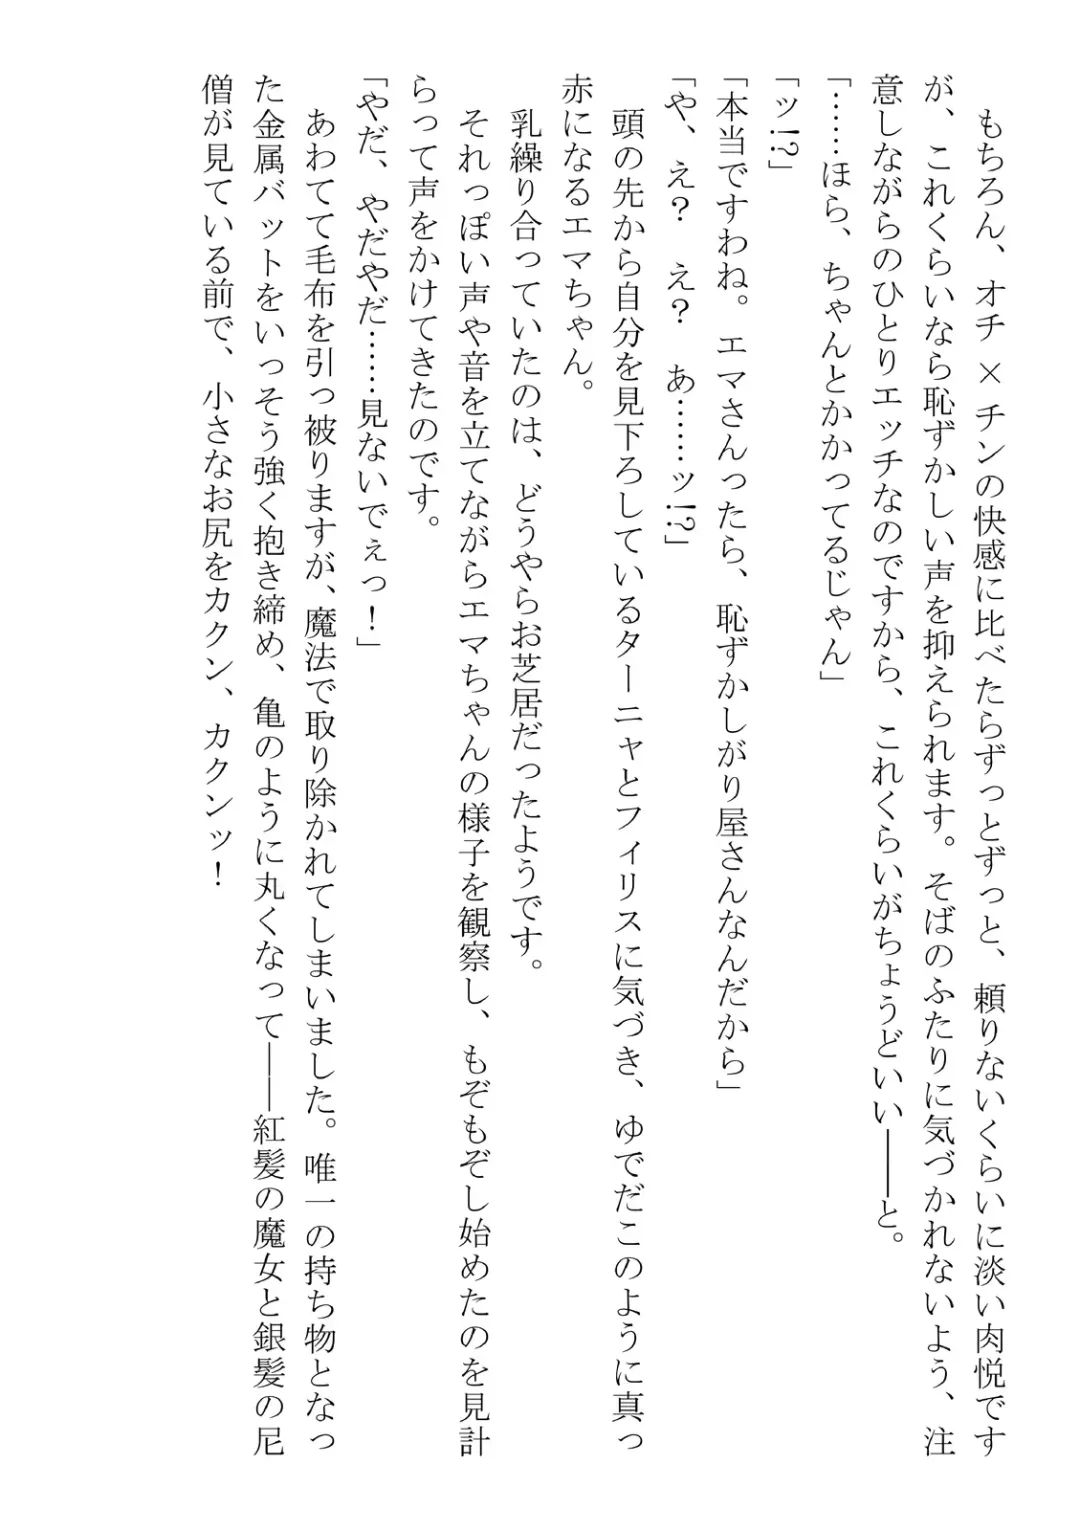 もちろん、オチ×チンの快感に比べたらずっとずっと、頼りないくらいに淡い肉悦です
が、これくらいなら恥ずかしい声を抑えられます。そばのふたりに気づかれないよう、注
意しながらのひとりエッチなのですから、これくらいがちょうどいい――と。
「……ほら、ちゃんとかかってるじゃん」
「ッ!?」
「本当ですわね。エマさんったら、恥ずかしがり屋さんなんだから」
「や、え？　え？　あ……ッ!?」
頭の先から自分を見下ろしているターニャとフィリスに気づき、ゆでだこのように真っ
赤になるエマちゃん。
乳繰り合っていたのは、どうやらお芝居だったようです。
それっぽい声や音を立てながらエマちゃんの様子を観察し、もぞもぞし始めたのを見計
らって声をかけてきたのです。
「やだ、やだやだ……見ないでぇっ！」
あわてて毛布を引っ被りますが、魔法で取り除かれてしまいました。唯一の持ち物となっ
た金属バットをいっそう強く抱き締め、亀のように丸くなって――紅髪の魔女と銀髪の尼
僧が見ている前で、小さなお尻をカクン、カクンッ！